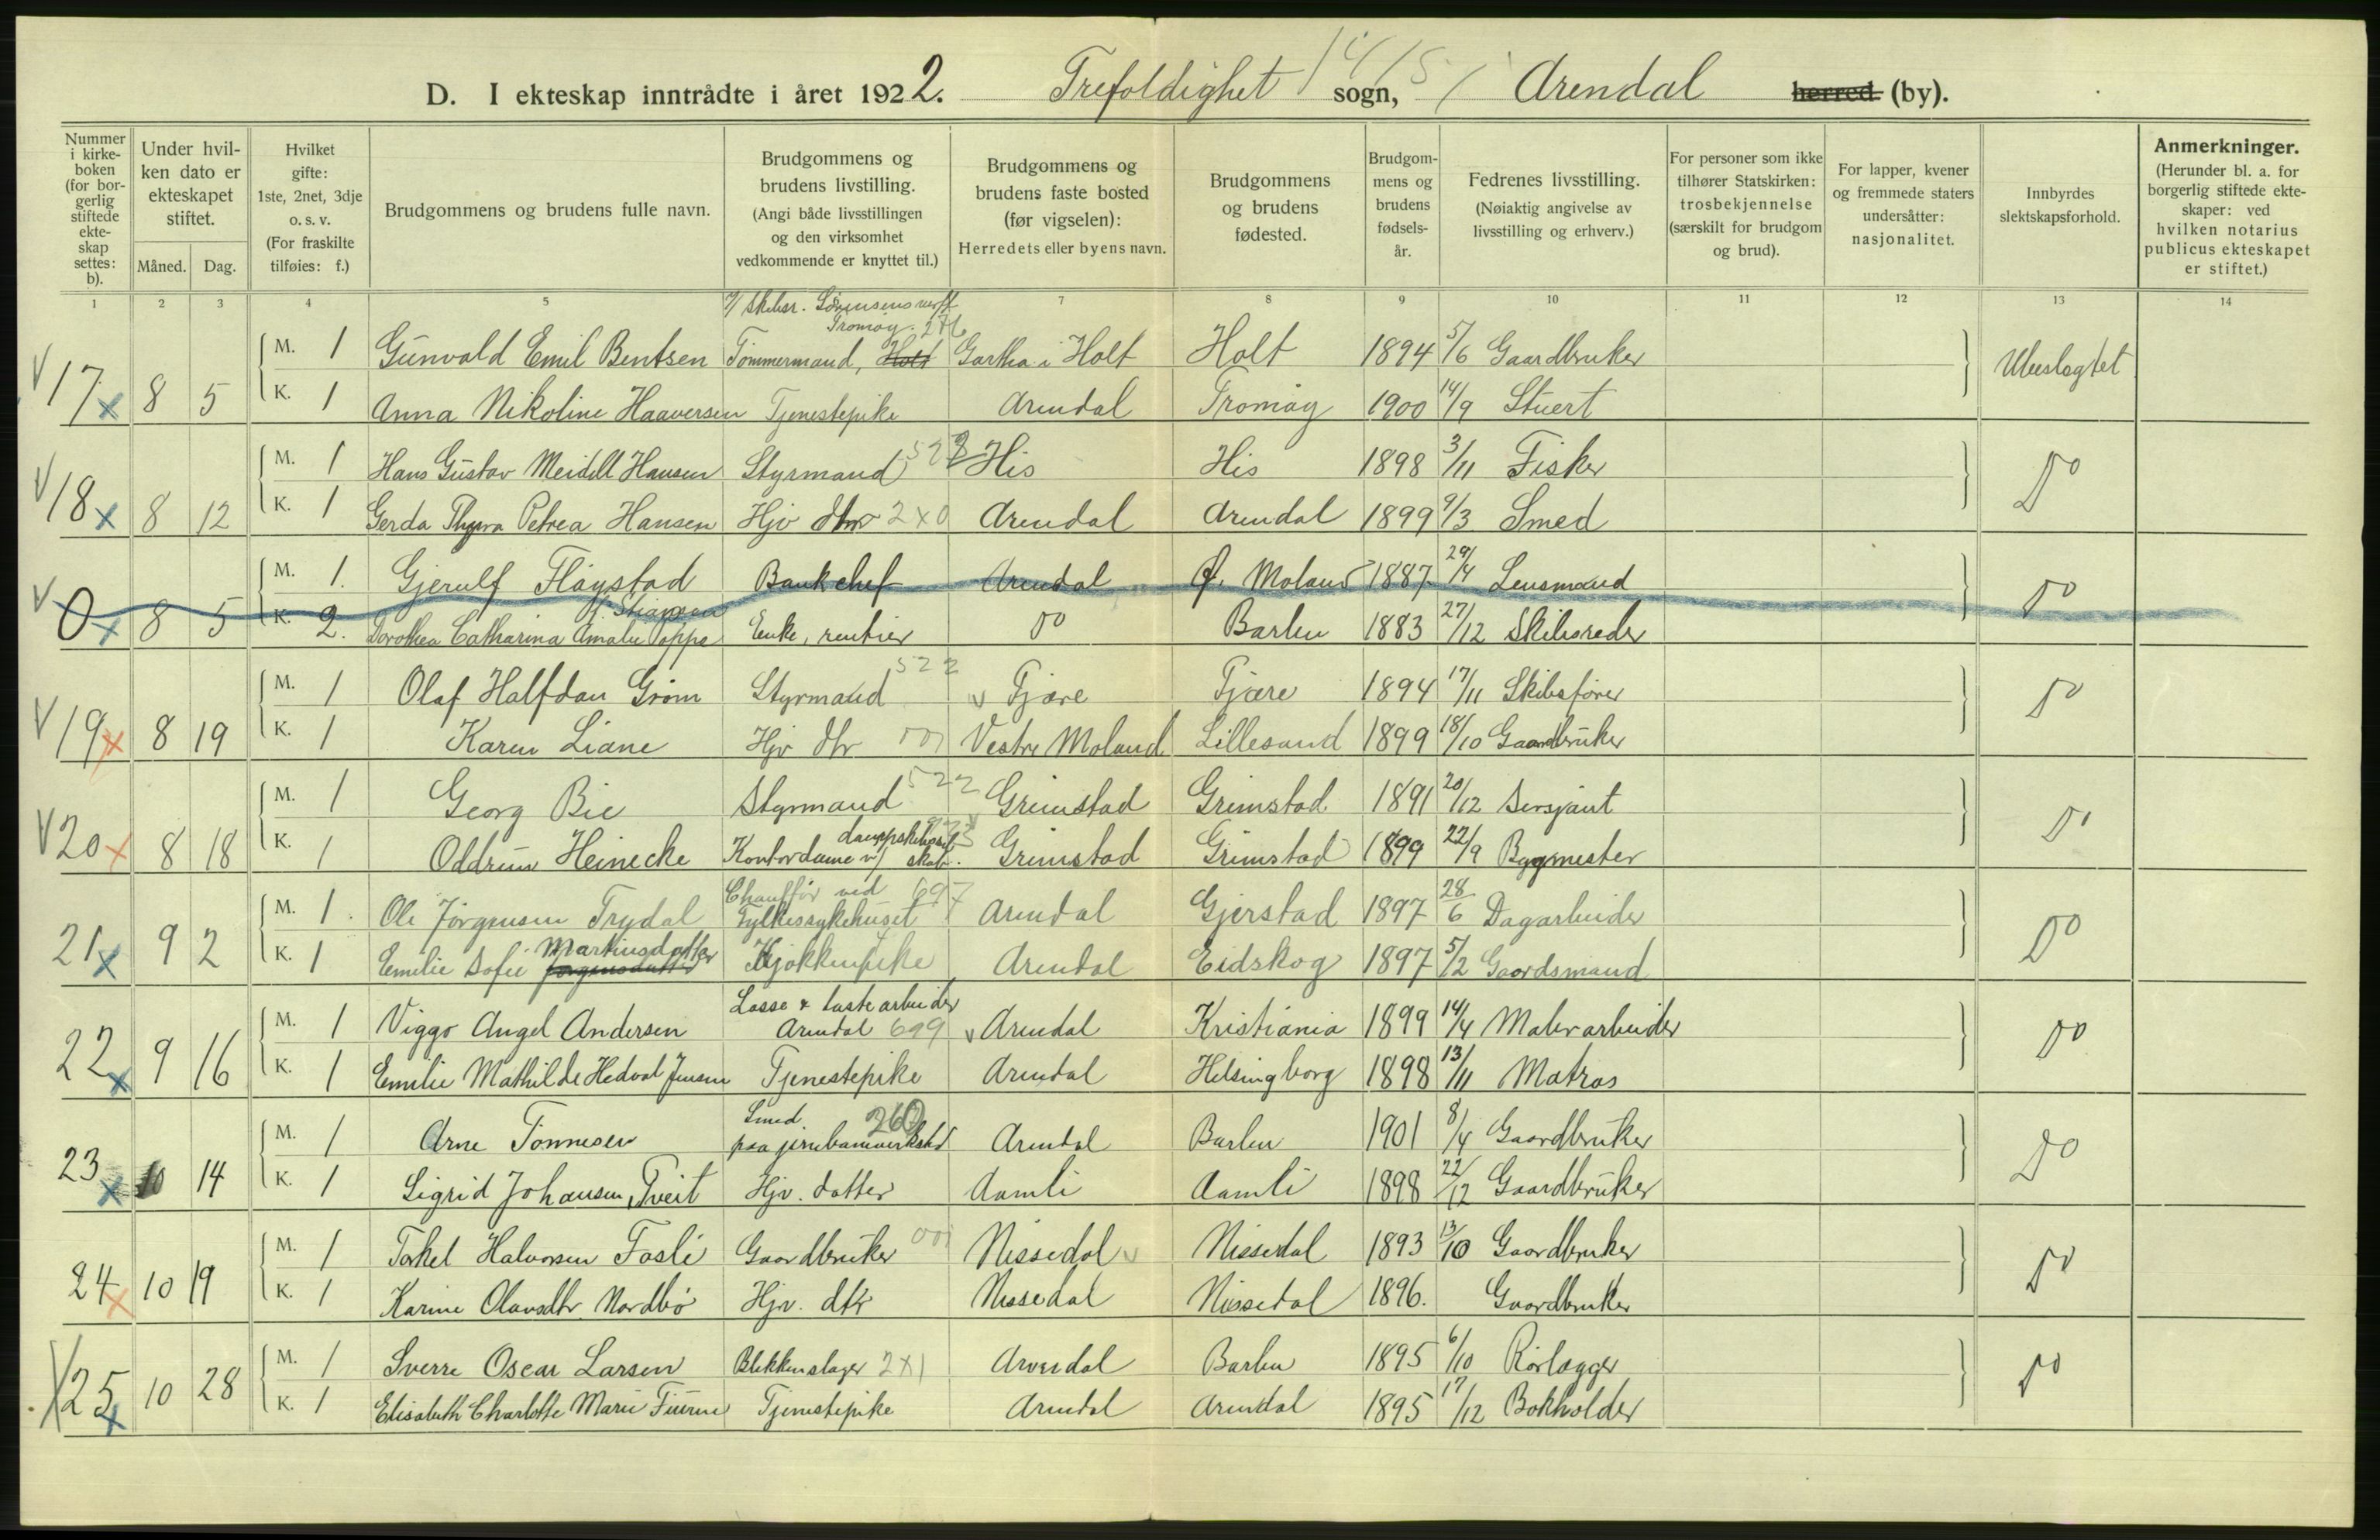 D. I ekteskap inntrådte i året 1922. Trefoldighet sogn, Arendal herred (by).
Nummer i kirkeboken (for borgerlig stiftede ekteskap settes: b).
Under hvilken dato er ekteskapet stiftet.
Måned. Dag.
Hvilket gifte: 1ste, 2net, 3dje o. s. v. (For fraskilte tilføies: f.)
Brudgommens og brudens fulle navn.
Brudgommens og brudens livstilling. (Angi både livsstillingen og den virksomhet vedkommende er knyttet til.)
Brudgommens og brudens faste bosted (før vigselen): Herredets eller byens navn.
Brudgommens og brudens fødested.
Brudgommens og brudens fødselsår.
Fedrenes livsstilling. (Nøiaktig angivelse av livsstilling og erhverv.)
For personer som ikke tilhører Statskirken: trosbekjennelse (særskilt for brudgom og brud).
For lapper, kvener og fremmede staters undersåtter: nasjonalitet.
Innbyrdes slektskapsforhold.
Anmerkninger. (Herunder bl. a. for borgerlig stiftede ekteskaper: ved hvilken notarius publicus ekteskapet er stiftet.)
1 2 3 4 5 7 8 9 10 11 12 13 14
v/ Skibsr. Sørensens verft
Tromøy. 276
M. 1 Gunvald Emil Bentsen Tømmermand, Holt Gartha i Holt Holt 1894 5/6 Gaardbruker Ubeslegtet
17 x 8 5 K. 1 Anna Nikoline Haaversen Tjenestepike Arendal Tromøy 1900 14/9 Stuert
M. 1 Hans Gustav Meidell Hansen Styrmand 522 His His 1898 3/11 Fisker Do
18 x 8 12 K. 1 Gerda Thyra Petrea Hansen Hjv dtr 2x0 Arendal Arendal 1899 9/3 Smed
M. 1. Gjerulf Fløystad Bankchef Arendal Ø. Moland 1887 29/4 Lensmand Do
0 x 8 5 K. 2. Dorothea Catharina Amalie Poppe Enke, rentier Do Barbu 1883 27/12 Skibsreder
M. 1 Olaf Halfdan Grøm Styrmand 522 Fjære Fjære 1894 17/11 Skibsfører Do
19 x 8 19 K. 1 Karen Liane Hjv dtr 001 Vestre Moland Lillesand 1899 18/10 Gaardbruker
M. 1 Georg Bie Styrmand 522 Grimstad Grimstad 1891 20/12 Sersjant Do
20 x 8 18 K. 1 Oddrun Heinecke Kontordame v/ dampskibssel skab. Grimstad Grimstad 1899 22/9 Bygmester
M. 1. Ole Jørgensen Trydal Chauffør ved Fylkessykehuset 697 Arendal Gjerstad 1897 28/6 Dagarbeider Do
21 x 9 2 K. 1 Emilie Sofie Jørgensdatter Martinsdatter Kjøkkenpike Arendal Eidskog 1897 5/2 Gaardsmand
Losse & lastearbeider
M. 1 Viggo Angel Andersen Arendal 699 Arendal Kristiania 1899 14/4 Malerarbeider Do
22 x 9 16 K. 1 Emilie Mathilde Hedval Jensen Tjenestepike Arendal Helsingborg 1898 13/11 Matros
Smed. 260
M. 1 Arne Tønnesen paa jernbaneverksted Arendal Barbu 1901 8/4 Gaardbruker Do
23 x 10 14 K. 1 Sigrid Johansen Tveit Hjv. datter Aamli Aamli 1898 22/12 Gaardbruker
M. 1 Torkel Halvorsen Fosli Gaardbruker 001 Nissedal Nissedal 1893 13/10 Gaardbruker Do
24 x 10 19 K. 1 Karine Olavsdtr. Nordbø Hjv. dtr Nissedal Nissedal 1896. Gaardbruker
M. 1 Sverre Oscar Larsen Blikkenslager 2x1 Arendal Barbu 1895 6/10 Rørlægger Do
25 x 10 28 K. 1 Elisabeth Charlotte Marie Tjenestepike Arendal Arendal 1895 17/12 Bokholder